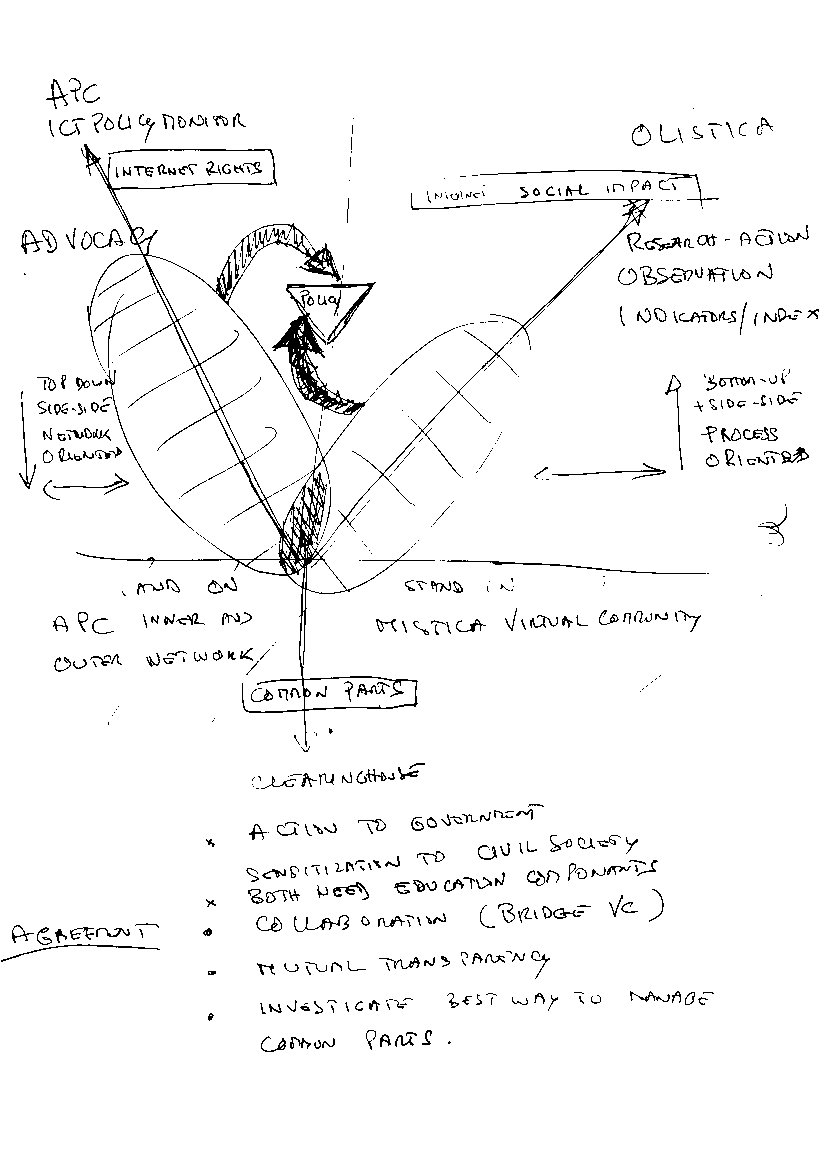 APC
ICT POLICY MONITOR
INTERNET RIGHTS
ADVOCACY
OLISTICA
INTERNET SOCIAL IMPACT
RESEARCH-ACTION
OBSERVATION
INDICATORS/INDEX
POLICY
TOP DOWN
SIDE-SIDE
NETWORK
ORIENTED
BOTTOM-UP
+SIDE-SIDE
PROCESS
ORIENTED
AND ON
APC INNER AND
OUTER NETWORK
STAND IN
MISTICA VIRTUAL COMMUNITY
COMMON PARTS
CLEARINGHOUSE
x ACTION TO GOVERNMENT
SENSITIZATION TO CIVIL SOCIETY
x BOTH NEED EDUCATION COMPONANTS
AGREEMENT
• COLLABORATION (BRIDGE VC)
• MUTUAL TRANSPARENCY
• INVESTIGATE BEST WAY TO MANAGE
COMMON PARTS.